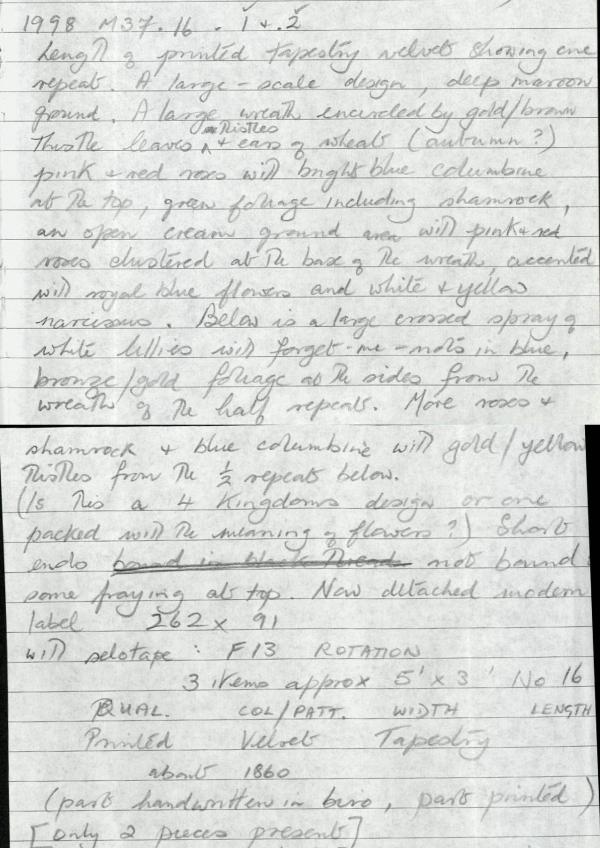 1998 M37.16. 1 + .2
Length of printed tapestry velvet showing one
repeat. A large-scale design, deep maroon
ground. A large wreath encircled by gold/brown
Thistle leaves + Thistles + ears of wheat (autumn?)
pink + red roses with bright blue columbine
at the top, green foliage including shamrock,
an open cream ground area with pink + red
roses clustered at the base of the wreath, accented
with royal blue flowers and white + yellow
narcissus. Below is a large crossed spray of
white lillies with forget-me-nots in blue,
bronze/gold foliage at the sides from the
wreath of the half repeats. More roses +
shamrock + blue columbine with gold/yellow
Thistles from the ½ repeats below.
(Is this a 4 Kingdoms design or one
packed with the meaning of flowers?) Short
ends bound in black thread not bound
some fraying at top. Now detached modern
label 262 x 91
with selotape: F13 ROTATION
3 items approx 5' x 3' No 16
QUAL. COL/PATT. WIDTH LENGTH
Printed Velvet Tapestry
about 1860
(part handwritten in biro, part printed)
[only 2 pieces present]